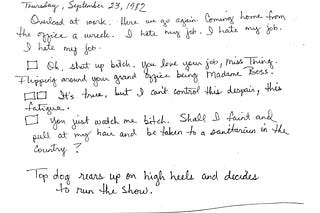 Thursday, September 23, 1982
Overload at work. Here we go again. Coming home from
the office a wreck. I hate my job. I hate my job.
I hate my job.
□ Oh, shut up bitch. You love your job, Miss Thing.
Flipping around your grand office being Madame Boss.
□□ It's true, but I can't control this despair, this
fatigue.
□ You just watch me bitch. Shall I faint and
pull at my hair and be taken to a sanitarium in the
country?
Top dog rears up on high heels and decides
to run the show.